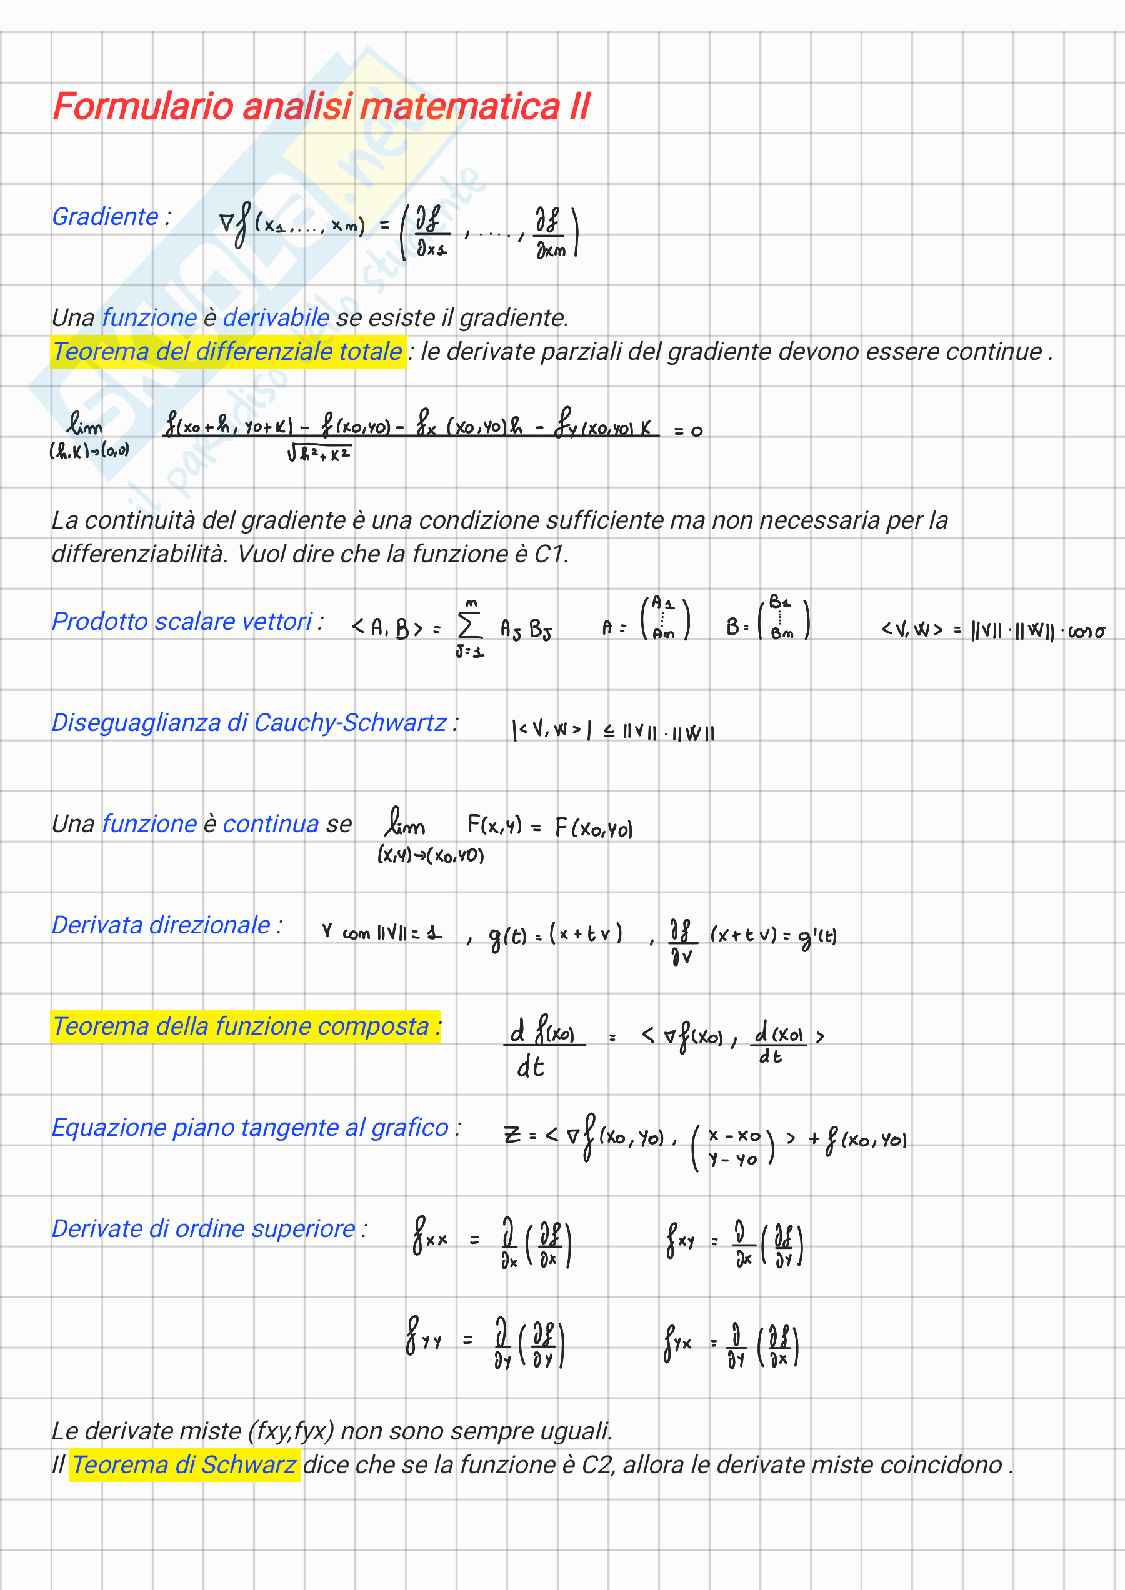 Formulario analisi matematica II
Gradiente : ∇f(x1,...,xm) = (∂f/∂x1 , .... , ∂f/∂xm)
Una funzione è derivabile se esiste il gradiente.
Teorema del differenziale totale : le derivate parziali del gradiente devono essere continue .
lim (h,K)→(0,0) f(x0+h, y0+K) - f(x0,y0) - fx (x0,y0)h - fy(x0,y0) K / √h²+K² = 0
La continuità del gradiente è una condizione sufficiente ma non necessaria per la
differenziabilità. Vuol dire che la funzione è C1.
Prodotto scalare vettori : <A, B> = ∑ m J=1 AJ BJ A = (A1 ⋮ Am) B = (B1 ⋮ Bm) <V, W> = ||V|| · ||W|| · cos σ
Diseguaglianza di Cauchy-Schwartz : |<V, W>| ≤ ||V|| · ||W||
Una funzione è continua se lim (x,y)→(x0,y0) F(x,y) = F(x0,y0)
Derivata direzionale : V con ||V|| = 1 , g(t) = (x + t v) , ∂f/∂v (x + t v) = g'(t)
Teorema della funzione composta : d f(x0)/dt = < ∇f(x0) , d(x0)/dt >
Equazione piano tangente al grafico : Z = < ∇f(x0, y0) , (x - x0 y - y0) > + f(x0, y0)
Derivate di ordine superiore : fxx = ∂/∂x (∂f/∂x) fxy = ∂/∂x (∂f/∂y)
fyy = ∂/∂y (∂f/∂y) fyx = ∂/∂y (∂f/∂x)
Le derivate miste (fxy,fyx) non sono sempre uguali.
Il Teorema di Schwarz dice che se la funzione è C2, allora le derivate miste coincidono .
SKUOLA.net
il paradiso dello studente